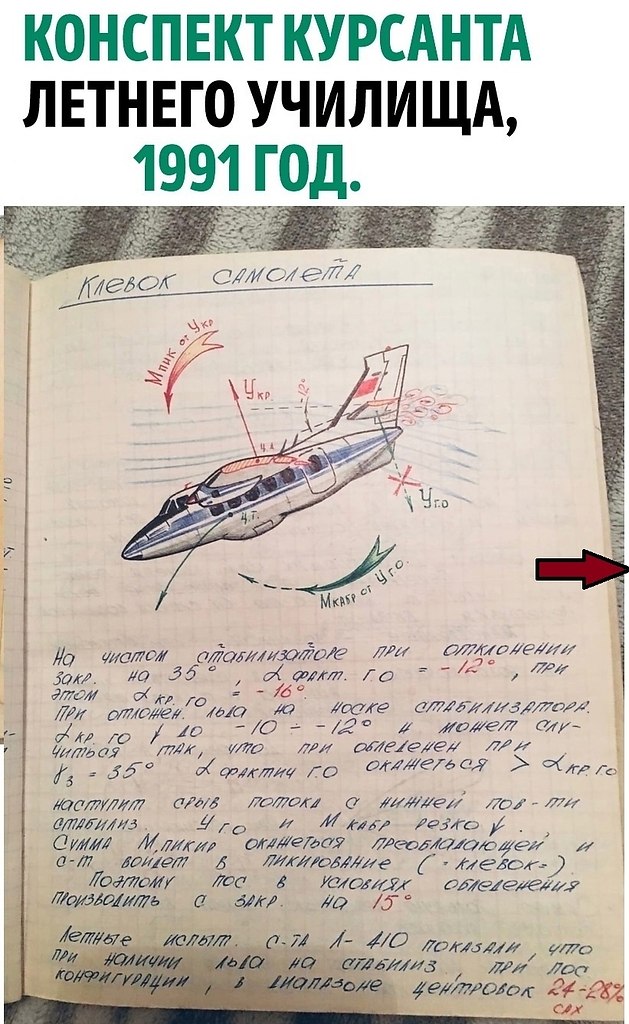 КОНСПЕКТ КУРСАНТА
ЛЕТНЕГО УЧИЛИЩА,
1991 ГОД.
КЛЕВОК САМОЛЕТА
М пик от Yкр
Yкр.
-12°
ц.д.
ц.т.
Yг.о
М кабр от Yг.о.
НА ЧИСТОМ СТАБИЛИЗАТОРЕ ПРИ ОТКЛОНЕНИИ
ЗАКР. НА 35°, α ФАКТ. Г.О = -12°, ПРИ
ЭТОМ α КР. ГО = -16°.
ПРИ ОТЛОЖЕН. ЛЬДА НА НОСКЕ СТАБИЛИЗАТОРА.
α КР. ГО ↓ ДО -10 ÷ -12° И МОЖЕТ СЛУ-
ЧИТЬСЯ ТАК, ЧТО ПРИ ОБЛЕДЕНЕН ПРИ
γз = 35° α ФАКТИЧ ГО ОКАЖЕТЬСЯ > α КР. ГО
НАСТУПИТ СРЫВ ПОТОКА С НИЖНЕЙ ПОВ-ТИ
СТАБИЛИЗ. Y ГО И М КАБР РЕЗКО ↓.
СУММА М.ПИКИР ОКАЖЕТЬСЯ ПРЕОБЛАДАЮЩЕЙ И
С-Т ВОЙДЕТ В ПИКИРОВАНИЕ (=КЛЕВОК=).
ПОЭТОМУ ПОС В УСЛОВИЯХ ОБЛЕДЕНЕНИЯ
ПРОИЗВОДИТЬ С ЗАКР. НА 15°
ЛЕТНЫЕ ИСПЫТ. С-ТА Л-410 ПОКАЗАЛИ, ЧТО
ПРИ НАЛИЧИИ ЛЬДА НА СТАБИЛИЗ, ПРИ ПОС
КОНФИГУРАЦИИ, В ДИАПАЗОНЕ ЦЕНТРОВОК 24-28%
САХ